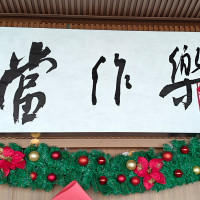 當作樂